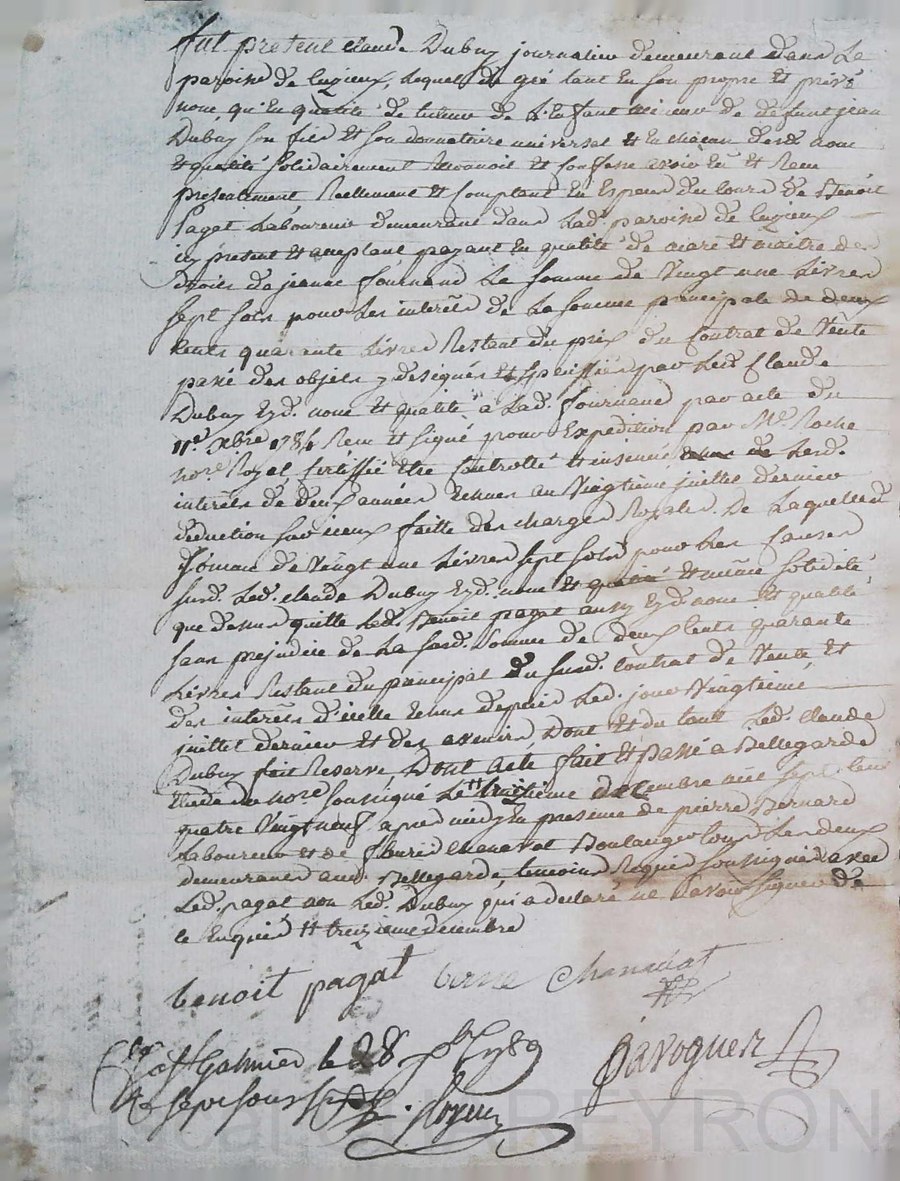 fut present claude Dubuy journalier demeurant dans la
paroisse de cuzieux, lequel de gré tant en son propre et privé
nom, qu'en qualité de tuteur de l'enfant mineur de defunt jean
Dubuy son fils et son donnataire universel et en chacun desd. noms
et qualité solidairement reconnoit et confesse avoir eu et recu
presentement reellement et comptant en especes du cours de Benoit
Pagat Laboureur demeurant dans lad. paroisse de cuzieux
icy present et acceptant payant en qualité de mary et maitre des
droits de jeanne fournand la somme de vingt une livres
sept sols pour les interets de la somme principale de deux
cents quarante livres restant du prix du contrat de vente
passé des objets y designés et speciffiés par led. Claude
Dubuy ezd. nom et qualité à lad. fournand par acte du
11e. Xbre 1784 recu et signé pour Expedition par Me. Roche
nore. Royal certiffié etre controllé et insinué lesd.
interets de deux années echues au vingtieme juillet dernier
deduction sur iceux faitte des charges Royales. De laquelle d.
somme de vingt une livres sept sols pour les causes
susd. led. claude Dubuy ezd. noms et qualité et meme solidité
que dessus quitte led. Benoit pagat aussy ezd noms et qualité
sans prejudice de la susd. somme de deux cents quarante
livres restant du principal du susd. contrat de vente et
des interets d'icelle echus depuis led. jour vingtieme
juillet dernier et des avenir dont et du tout led. claude
Dubuy fait reserve, Dont acte fait et passé a Bellegarde
etude du nore. soussigné le treizieme decembre mil sept cent
quatre vingt neuf apres midy en presence de pierre Bernard
Laboureur et de fleury chanavat Boulanger tous les deux
demeurants aud. Bellegarde, temoins Requis soussignés avec
led. pagat non led. Dubuy qui a declaré ne savoir signer de
ce enquis et treizieme decembre
benoit pagat chanavat
Javoguer
St Galmier le 28 Xbre 1789
sept sous